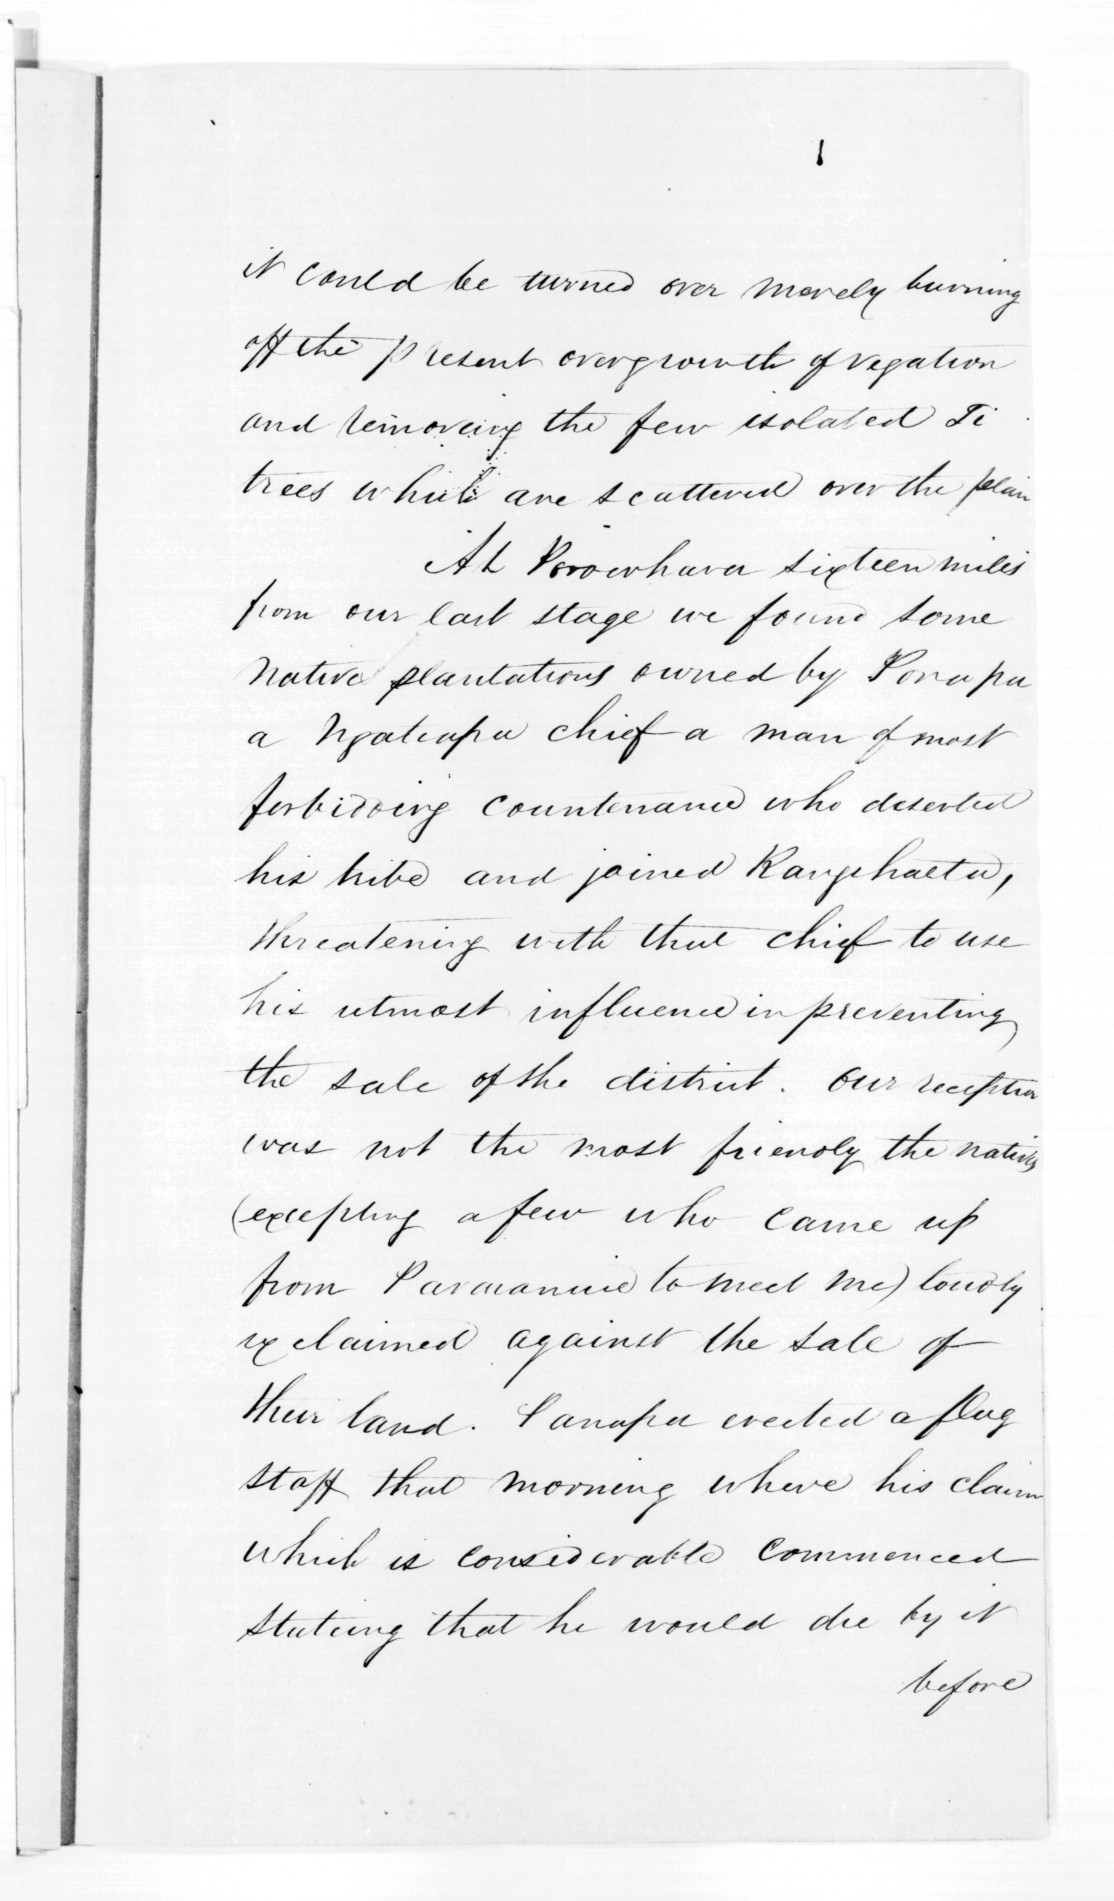 it could be turned over merely burning
off the present overgrowth of vegation
and removing the few isolated Ti
trees which are scattered over the plain
At Porowhara sixteen miles
from our last stage we found some
native plantations owned by
a chief a man of most
forbidding countenance who deserted
his tribe and joined
threatening with that chief to use
his utmost influence in preventing
the sale of the district. Our reception
was not the most friendly the natives
(excepting a few who came up
from to meet me) loudly
exclaimed against the sale of
their land. Panapa erected a flag
staff that morning where his claim
which is considerable commenced
stating that he would die by it
before